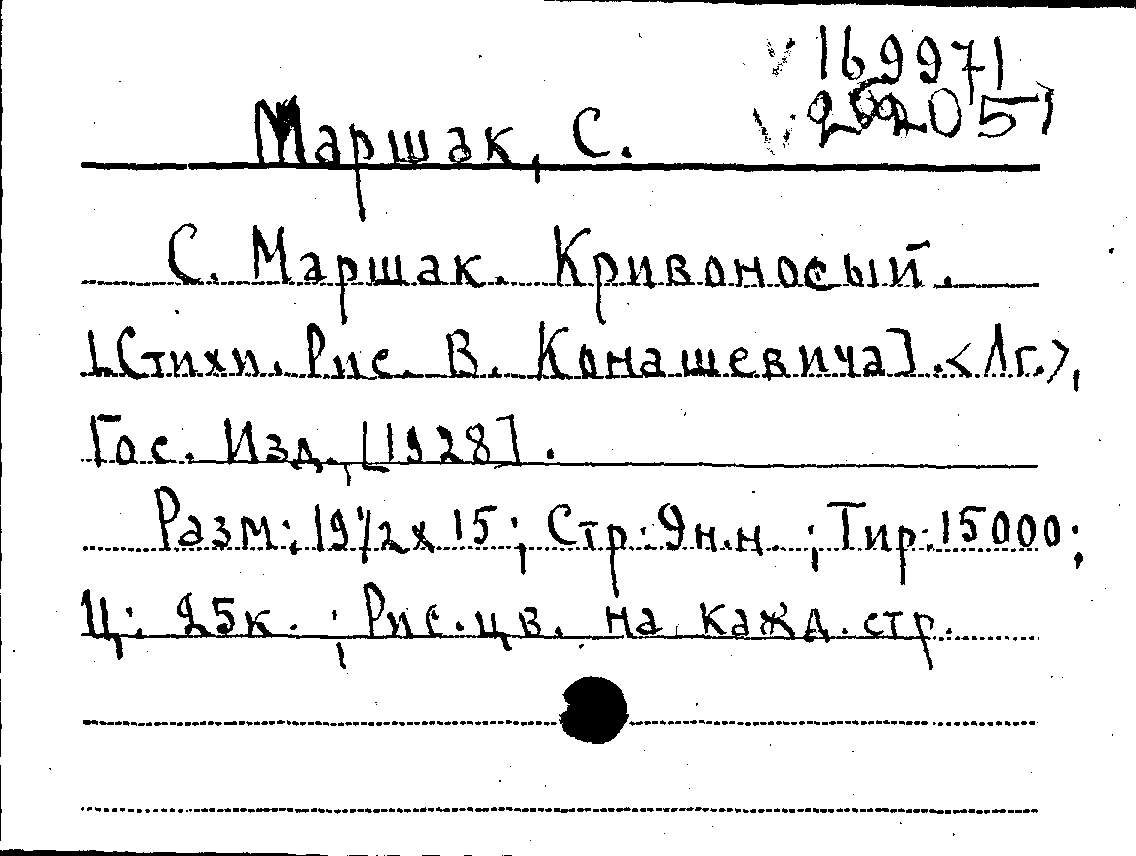 169971
Маршак, С.
С. Маршак. Кривоносый.
[Стихи. Рис. В. Конашевича]. <Лг.>,
Гос. Изд., [1928].
Разм: 19 1/2 x 15; Стр: 9 н.н. ; Тир: 15000;
Ц: 25к. ; Рис. цв. на кажд. стр.